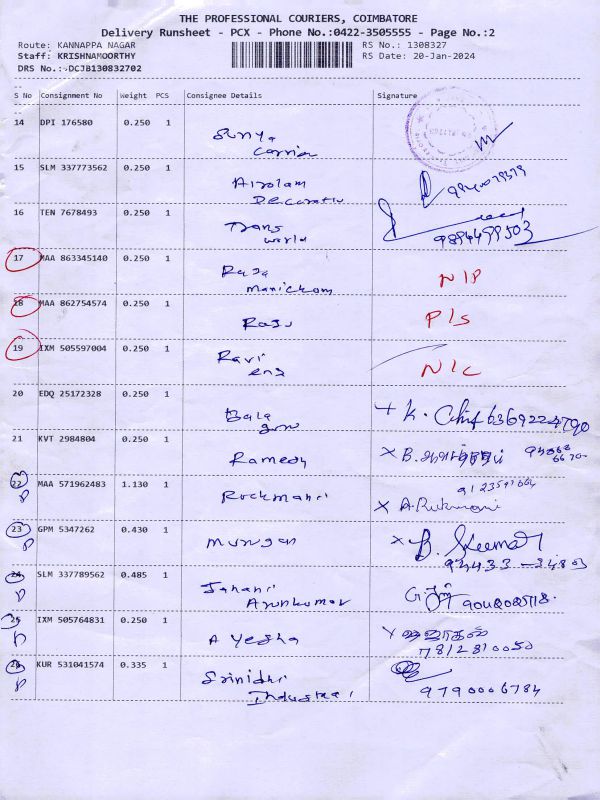 THE PROFESSIONAL COURIERS, COIMBATORE
Delivery Runsheet - PCX - Phone No.:0422-3505555 - Page No.:2
Route: KANNAPPA NAGAR
RS No.: 1308327
Staff: KRISHNAMOORTHY
RS Date: 20-Jan-2024
DRS No.: DCJB130832702
S No Consignment No Weight PCS Consignee Details Signature
14 DPI 176580 0.250 1
Surya
Carrier
15 SLM 337773562 0.250 1 Airolam
Decorativ
16 TEN 7678493 0.250 1 Trans
world
9894499503
17 MAA 863345140 0.250 1 Raja
manickam
N/P
18 MAA 862754574 0.250 1
Raju
P/s
19 IXM 505597004 0.250 1 Ravi
eng
N/C
20 EDQ 25172328 0.250 1
Bala
K. 6369224790
21 KVT 2984804 0.250 1
Ramesh
X B.
22 MAA 571962483 1.130 1
Rockmani
X A. Rukmani
23 GPM 5347262 0.430 1
murugan
X B.
94433-
24 SLM 337789562 0.485 1
Janani
Arunkumar
25 IXM 505764831 0.250 1
Ayesha
7812810050
26 KUR 531041574 0.335 1
Srinidhi
Industrial
9790006784